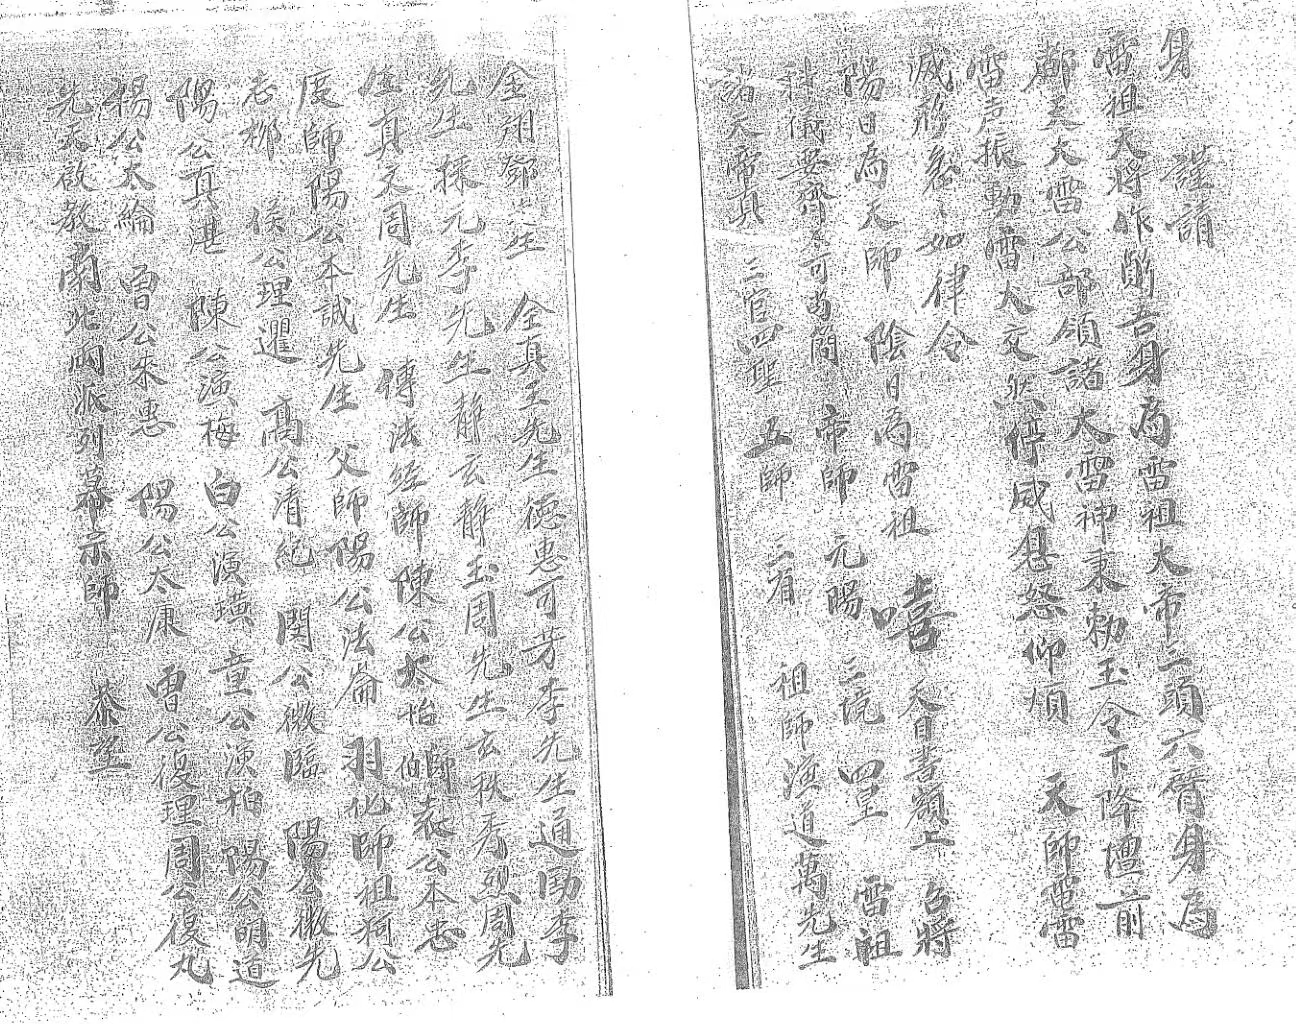 身　謹請
雷祖天將作鄧吾身為雷祖大帝三頭六臂身為
鄰五大雷公部領諸大雷神秉勅玉令下降壇前
雷声振動雷火交然停威息怒仰煩　天師電雷
滅形急〻如律令
陽日為天師　陰日為雷祖　嘻　天目書額上　召將
科儀要齊不可苟簡　帝師　元賜　三境　四皇　雷祖
諸天帝真　三官四聖　五師　三省　祖師演道萬先生
金翊鄧先生　全真王先生德惠可芳李先生通勛李
先生　採元李先生靜玄靜玉周先生玄秩秀烈周先
度真文周先生　傅法經師陳公太怡　師伯袁公本忠
度師陽公本誠先生　父師陽公法崙　羽化師祖柯公
志梛　侯公理邏　高公清紀　閔公微臨　陽公微先
陽公真湛　陳公演梅　白公演璜　童公演柏　陽公明道
楊公太綸　曹公朱惠　陽公太康　曹公復理周公復丸
先天啟教南北兩派列幕宗師　恭望